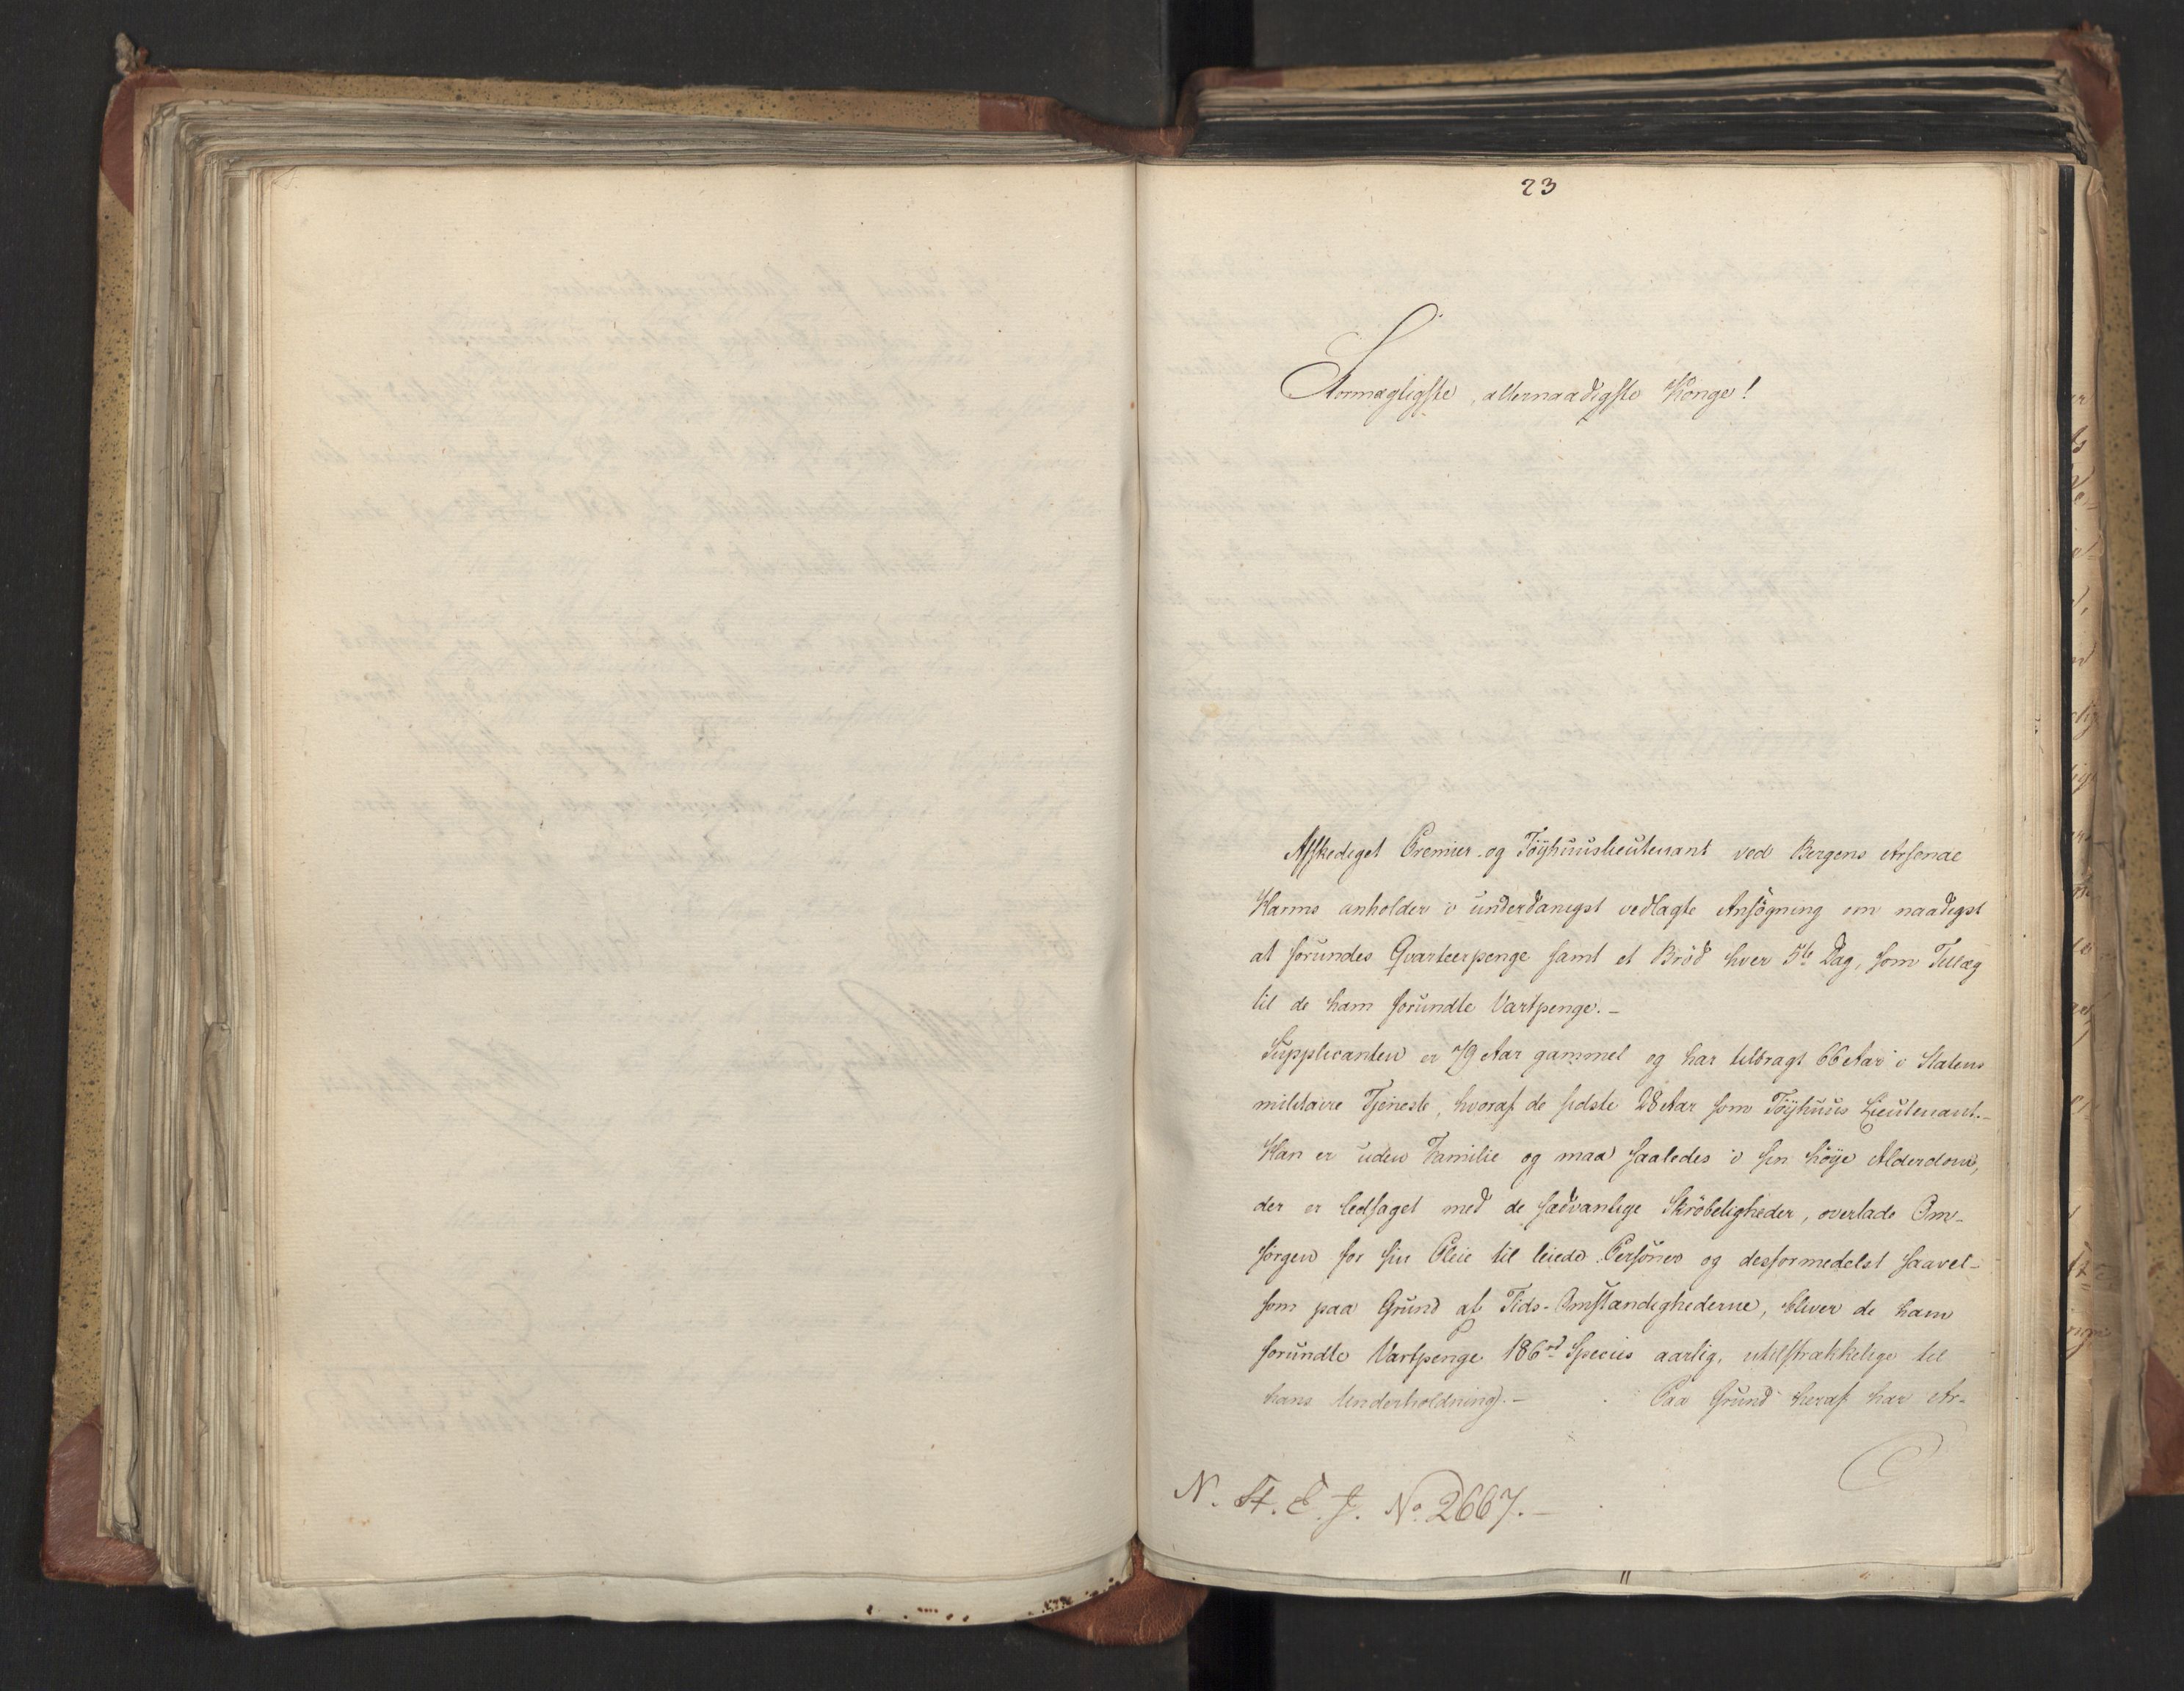 23
Stormægtigste, allernaadigste Konge!
Afskediget Premier- og Töyhuuslieutenant ved Bergens Arsenal
Harms anholder i underdanigst vedlagte Ansögning om naadigst
at forundes Qvarteerpenge samt et Bröd hver 5te Dag, som Tillæg
til de ham forundte Vartpenge.-
Supplicanten er 79 Aar gammel og har tilbragt 66 Aar i Statens
militaire Tjeneste, hvoraf de sidste 28 Aar som Töyhuus Lieutenant.-
Han er uden Familie og maa saaledes i sin höye Alderdom,
der er ledsaget med de sædvanlige Skröbeligheder, overlade Om-
sorgen for sin Pleie til leiede Personer og desformedelst saavel-
som paa Grund af Tids-Omstændighederne, bliver de ham
forundte Vartpenge 186 rd Species aarlig, utilstrækkelige til
hans Underholdning.- Paa Grund heraf har Ar-
N. St. E. J. No 2667.-